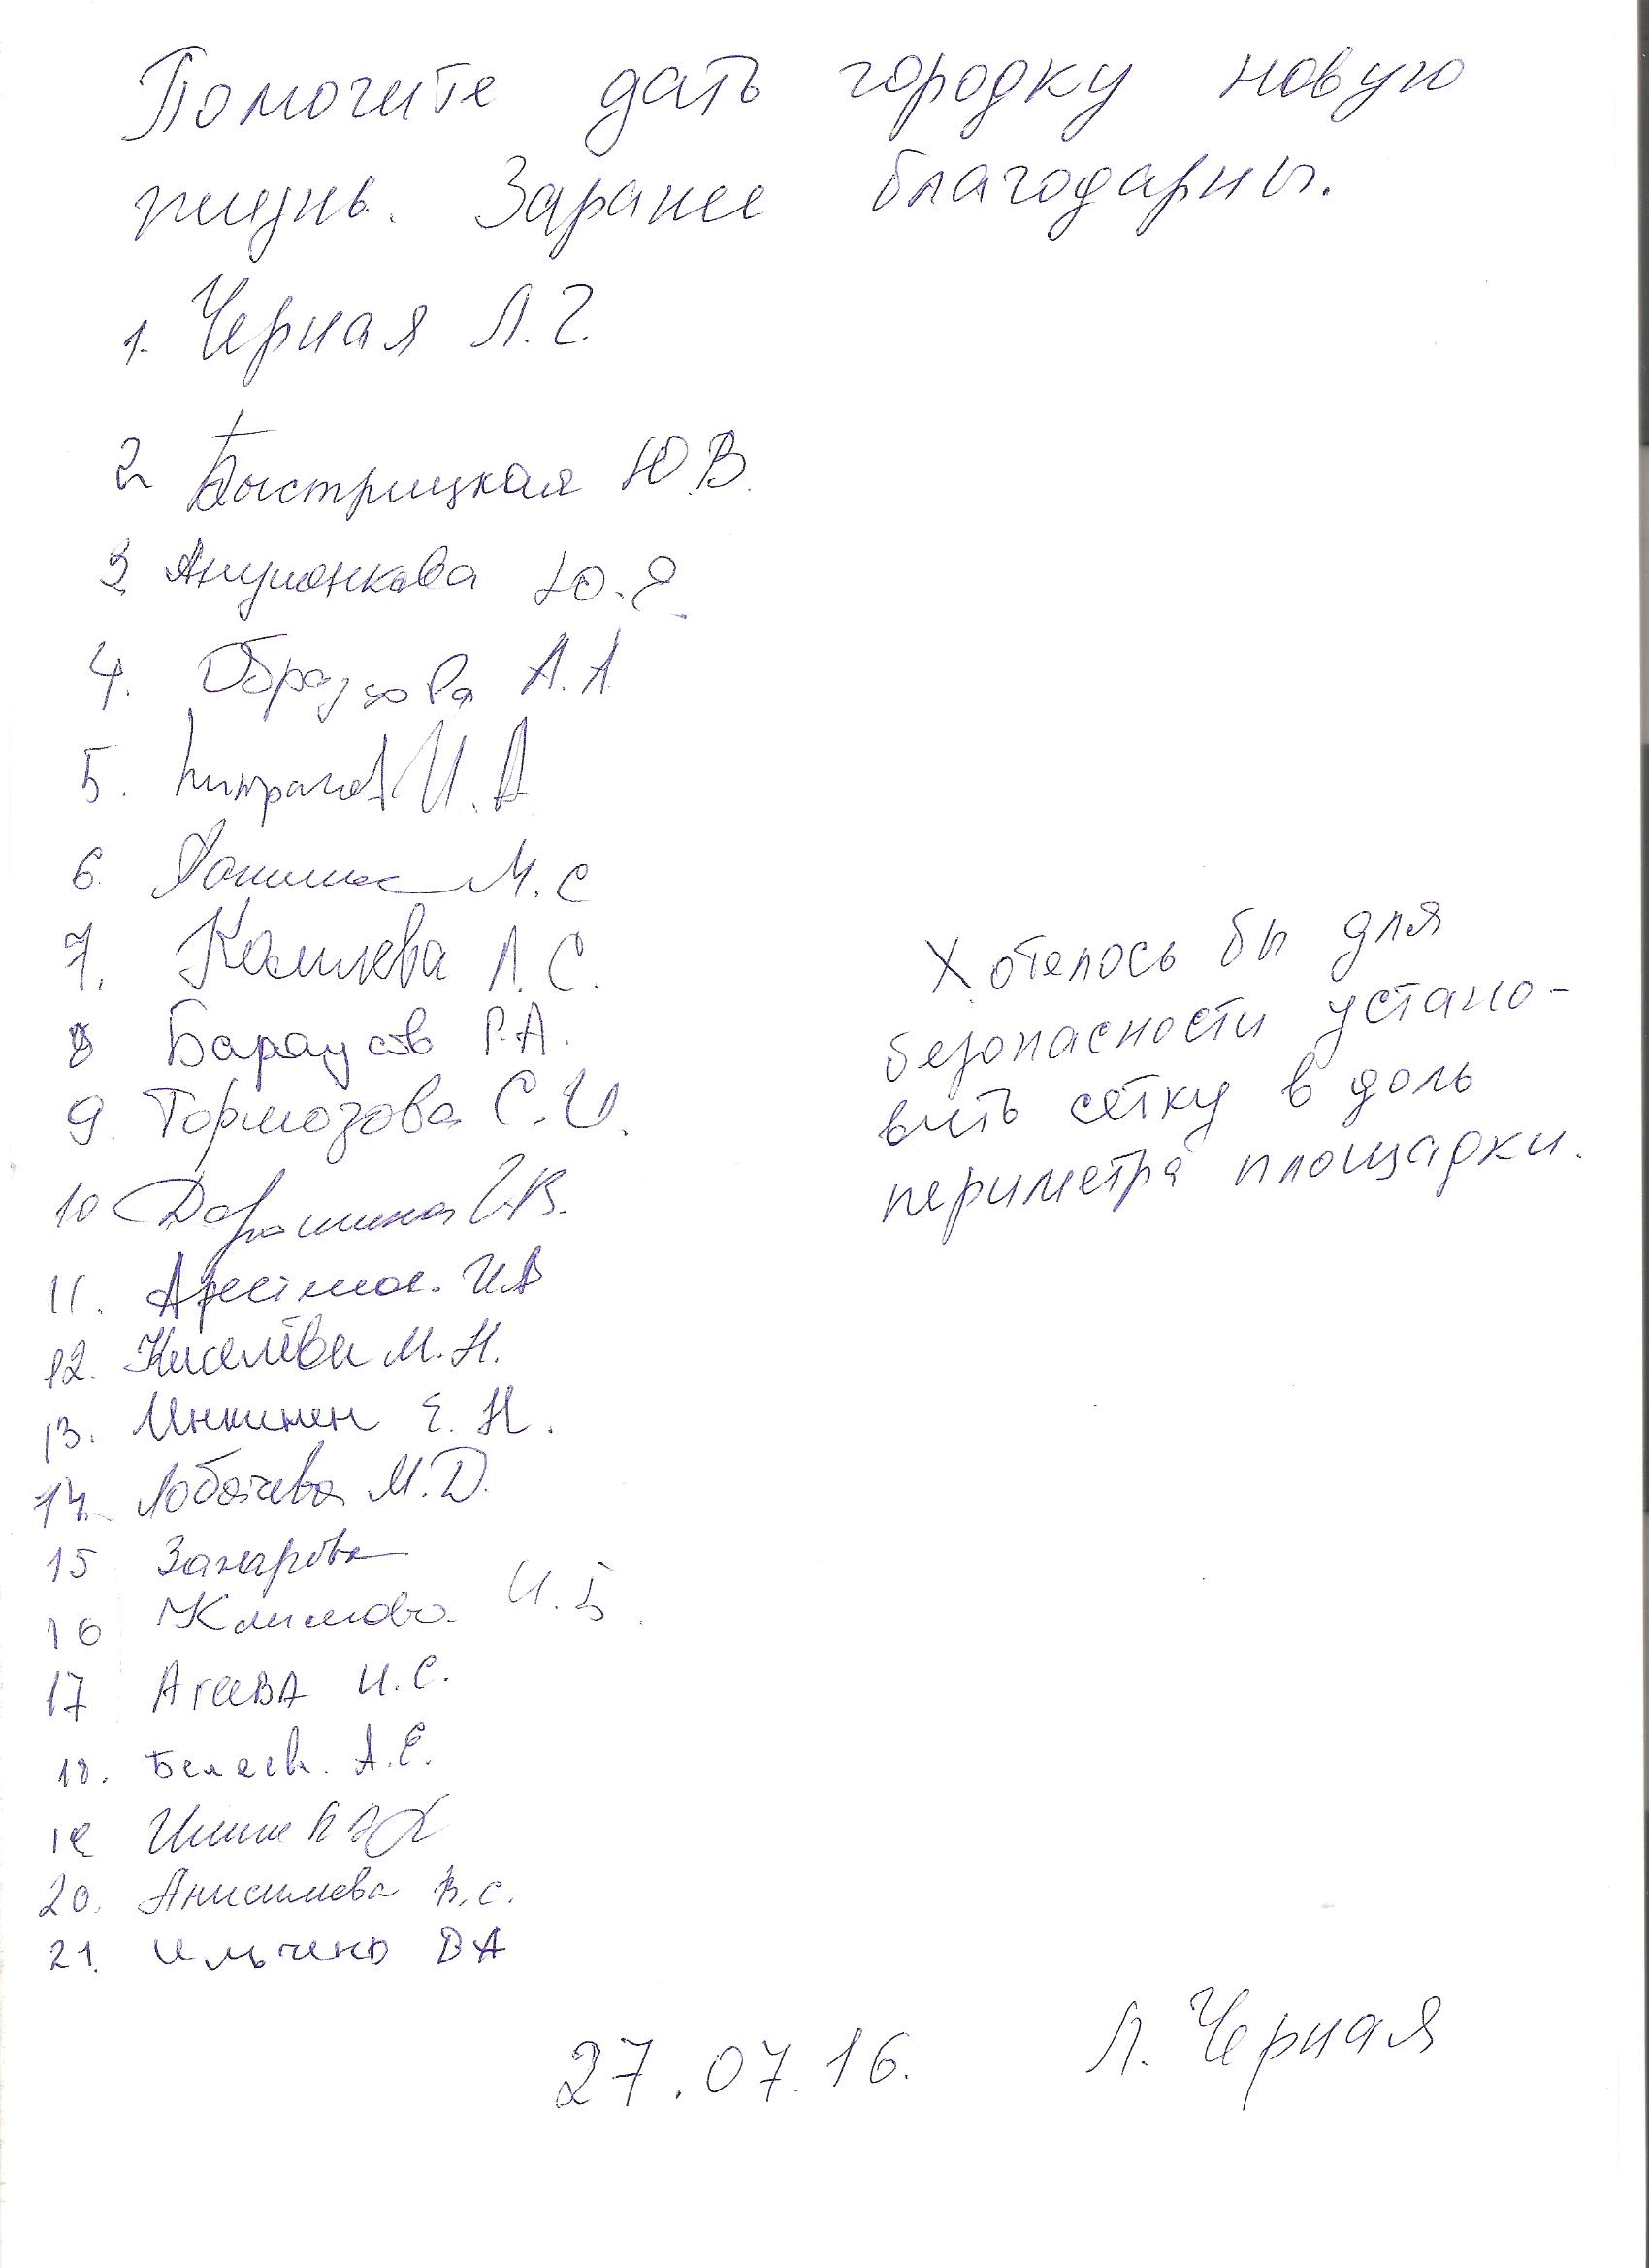 Помогите дать городку новую
жизнь. Заранее благодарны.
1. Черная Л.Г.
2 Быстрицкая Ю.В.
3
4. Образцова А.А
5. И.А
6. М.С
7. Л.С.
8 Р.А.
9. Тормозова С.И.
10 Дорошина И.В.
11. И.В
12. Киселёва М.Н.
13. Инкинен Е.Н.
14. Лобачева М.Д.
15 Захарова
16 Климова И.Б.
17 Агеева И.С.
18. Беляев. А.Е.
19
20. Анисимова В.С.
21. Ильченко ДА
Хотелось бы для
безопасности устано-
вить сетку в доль
периметра площадки.
27.07.16. Л. Черная